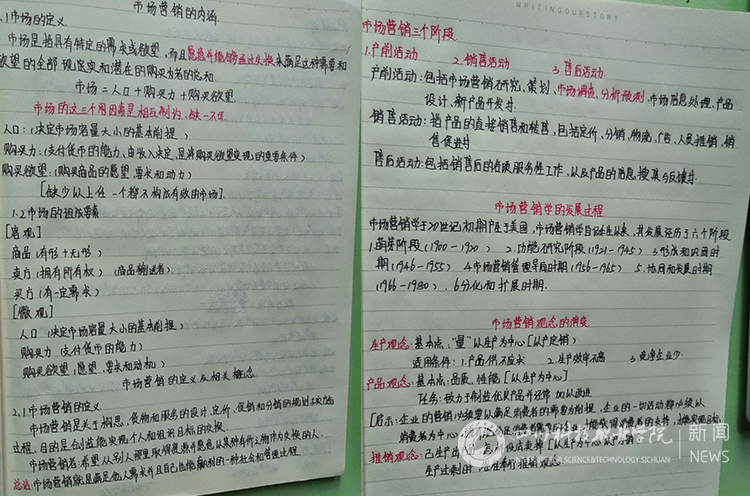 市场营销的内涵
.1市场的定义
市场是指具有特定的需求或欲望,而且愿意并能够通过交换来满足这种需要和
欲望的全部现实和潜在的购买者的总和.
市场=人口+购买力+购买欲望
市场的这三个因素是相互制约、缺一不可
人口:(决定市场容量大小的基本前提)
购买力:(支付货币的能力、由收入决定,是将购买欲望变现的重要条件)
购买欲望:(购买商品的愿望、要求和动力)
[缺少以上任一个都不构成有效的市场]
1.2市场的组成要素
[宏观]
商品(有形+无形)
卖方(拥有所有权)(商品输送者)
买方(有一定需求)
[微观]
人口(决定市场容量大小的基本前提)
购买力(支付货币的能力)
购买欲望(愿望、要求和动机)
市场营销的定义及相关概念
2.1市场营销的定义
市场营销是关于构思、货物和服务的设计、定价、促销和分销的规划与实施
过程,目的是创造能实现个人和组织目标的交换。
市场营销者:希望从别人那里取得资源并愿意以某种有价之物作为交换的人.
总结:市场营销就是满足他人需求并且自己也能赢利的一种社会和管理过程
WRITINGOURSTORY
市场营销三个阶段
1.产前活动 2.销售活动 3.售后活动
产前活动:包括市场营销研究、策划、市场调查、分析预测、市场信息处理、产品
设计、新产品开发计.
销售活动:指产品的直接销售和转售,包括定价、分销、物流、广告、人员推销、销
售促进计
售后活动:包括销售后的各项服务性工作,以及产品的信息搜集与反馈计.
市场营销学的发展过程
市场营销学于20世纪初期产生于美国,市场营销学自诞生以来,其发展经历了六个阶段
1.萌芽阶段(1900-1920) 2.功能研究阶段(1921-1945) 3.形成和巩固时
期(1946-1955) 4.市场营销管理导向时期(1956-1965) 5.协同和发展时期
(1966-1980)、6.分化和扩展时期.
市场营销观念的演变
生产观念:基本点:"量"以生产为中心[以产定销]
适用条件:1.产品供不应求 2.生产效率不高 3.竞争企业少
产品观念:基本点:品质、性能[以生产为中心]
任务:致力于制造优良产品并经常加以改进
[启示:企业的营销必须要以满足消费者的需要为前提,企业的一切活动都必须以
消费者为中心
推销观念:
四川科技职业学院 新闻
CENTER FOR SCIENCE&TECHNOLOGY SICHUAN NEWS